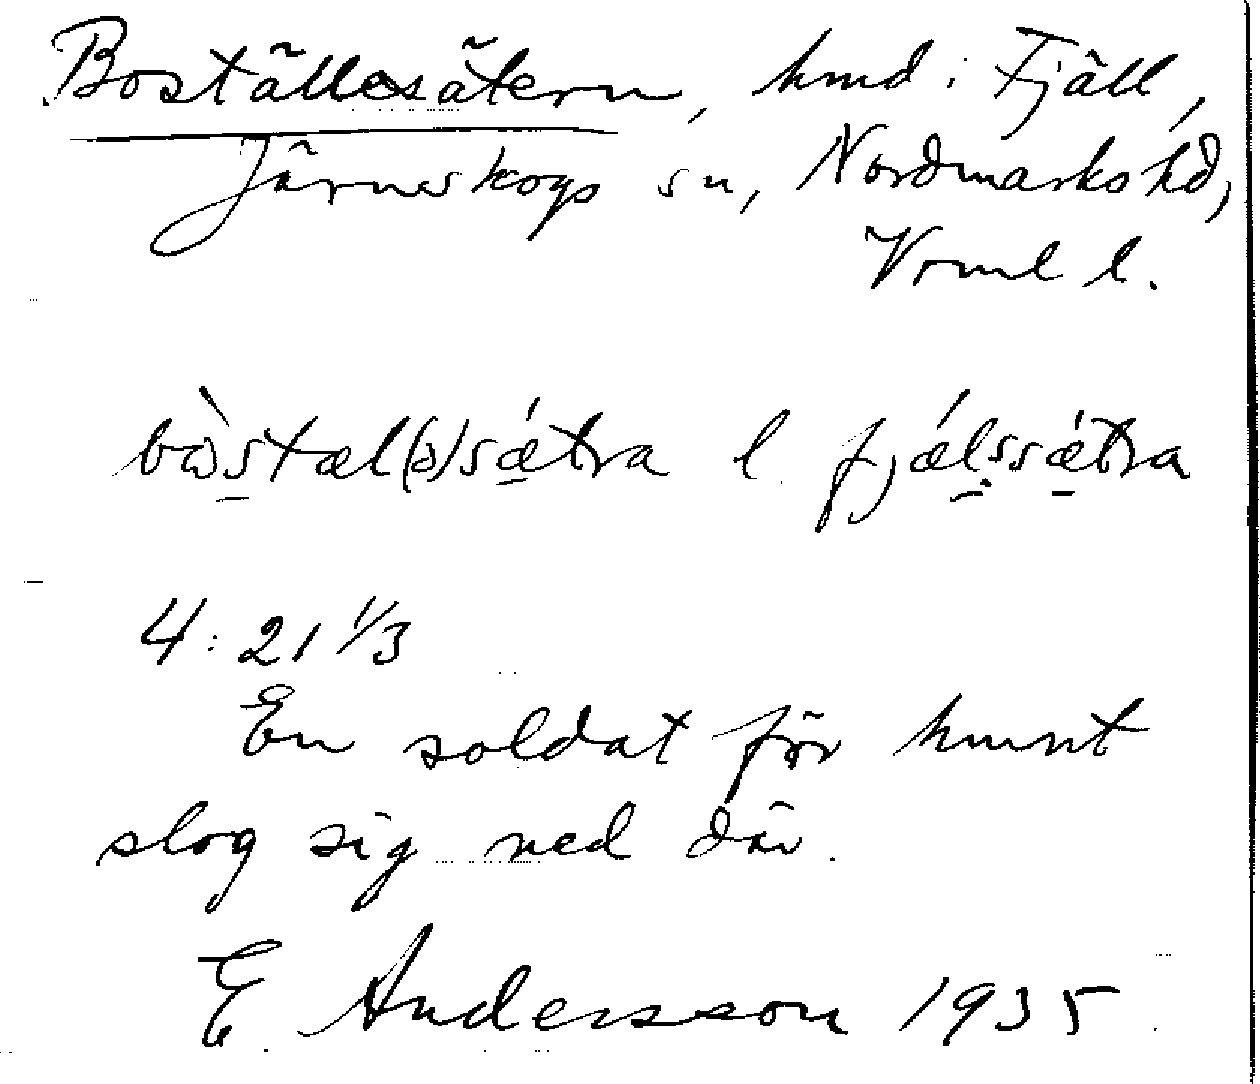 Boställesätern, hmd i Fjäll,
Järnskogs sn, Nordmarks hd,
Vrml l.
bòstæl(ə)sǽtra l fjǽlssǽtra
4:21 1/3
En soldat för hunnit
slog sig ned där.
E. Andersson 1935